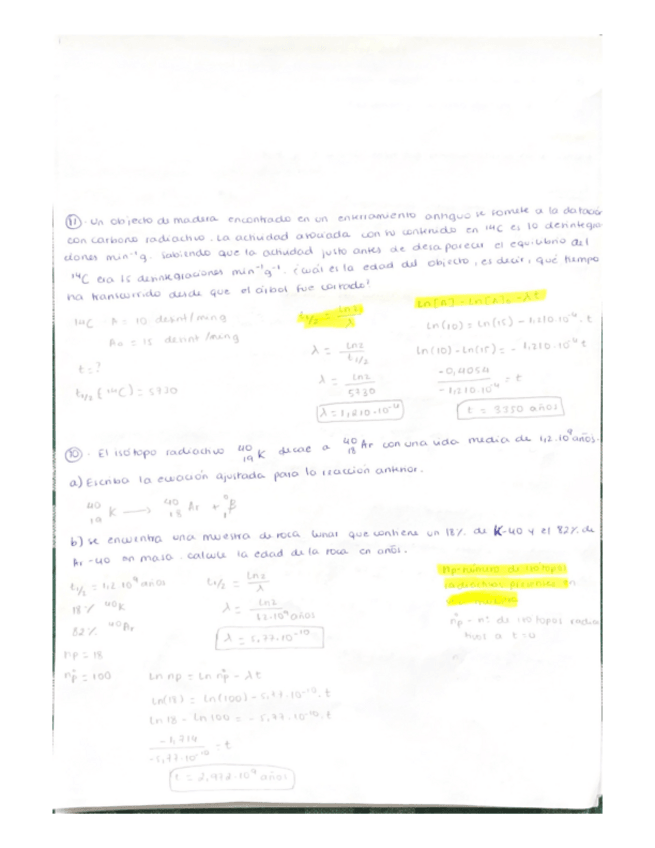 ⑪. Un objecto de madera encontrado en un enterramiento antiguo se somete a la datación
con carbono radiactivo. La actividad asociada con su contenido en ¹⁴C es 10 desintegra
ciones min⁻¹g. Sabiendo que la actividad justo antes de desaparecer el equilibrio del
¹⁴C era 15 desintegraciones min⁻¹g⁻¹. ¿Cuál es la edad del objecto, es decir, qué tiempo
ha transcurrido desde que el árbol fue cortado?
¹⁴C A = 10 desint/min g
A₀ = 15 desint/min g
t = ?
t₁/₂ (¹⁴C) = 5730
t₁/₂ = ln2/λ
λ = ln2/t₁/₂
λ = ln2/5730
λ = 1,210·10⁻⁴
Ln[A] = Ln[A]₀ - λt
Ln(10) = Ln(15) - 1,210·10⁻⁴·t
Ln(10) - Ln(15) = - 1,210·10⁻⁴ t
-0,4054/-1,210·10⁻⁴ = t
t = 3350 años
⑩. El isótopo radiactivo ⁴⁰₁₉K decae a ⁴⁰₁₈Ar con una vida media de 1,2·10⁹ años.
a) Escriba la ecuación ajustada para la reacción anterior.
⁴⁰₁₉K → ⁴⁰₁₈Ar + ⁰₁β
b) Se encuentra una muestra de roca lunar que contiene un 18% de K-40 y el 82% de
Ar-40 en masa. Calcule la edad de la roca en años.
t₁/₂ = 1,2·10⁹ años
18% ⁴⁰K
82% ⁴⁰Ar
np = 18
n°p = 100
t₁/₂ = ln2/λ
λ = ln2/1,2·10⁹ años
λ = 5,77·10⁻¹⁰
np = número de isótopos
radiactivos presentes en
n°p = nº de isótopos radia
tivos a t=0
Ln np = Ln n°p - λt
Ln(18) = Ln(100) - 5,77·10⁻¹⁰·t
Ln 18 - Ln 100 = - 5,77·10⁻¹⁰·t
-1,714/-5,77·10⁻¹⁰ = t
t = 2,972·10⁹ años